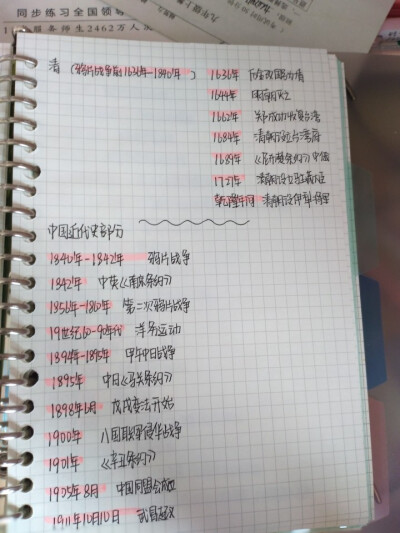 同步练习全国领导
服务师生2462万人次
九年级上
清（鸦片战争前1636年-1840年）
1636年 后金改国号清
1644年 明朝灭亡
1662年 郑成功收复台湾
1684年 清朝设台湾府
1689年 《尼布楚条约》中俄
1727年 清朝设立驻藏大臣
乾隆年间 清朝设伊犁将军
中国近代史部分
1840年-1842年 鸦片战争
1842年 中英《南京条约》
1856年-1860年 第二次鸦片战争
19世纪60-90年代 洋务运动
1894年-1895年 甲午中日战争
1895年 中日《马关条约》
1898年6月 戊戌变法开始
1900年 八国联军侵华战争
1901年 《辛丑条约》
1905年8月 中国同盟会成立
1911年10月10日 武昌起义